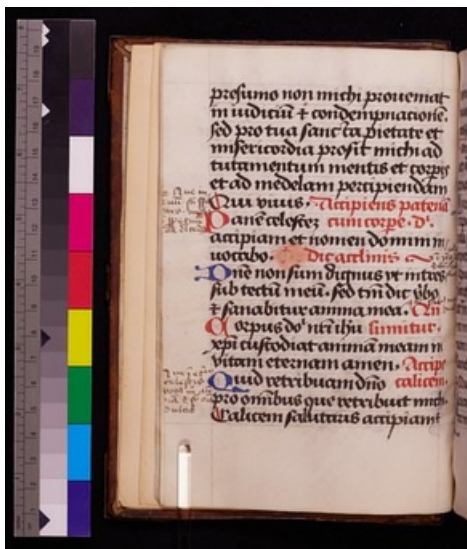 presumo non michi proueniat
in iudiciū ⁊ condempnacionē.
sed pro tua sancta pietate et
misericordia prosit michi ad
tutamentum mentis et corpis
et ad medelam percipiendam
Qui viuis. Accipiens patenā
Panē celestez cum corpe. d'.
accipiam et nomen domini
uocabo. Dic acclinis
Dñe non sum dignus vt intres
sub tectū meū. sed tm̄ dic v̄bo
⁊ sanabitur anima mea.
Corpus do' nr̄i ihū Sumitur.
xp̄i custodiat animā meam in
vitam eternam amen. Accipe
Quid retribuam dn̄o calicem.
pro omnibus que retribuit mich
Calicem salutaris accipiam